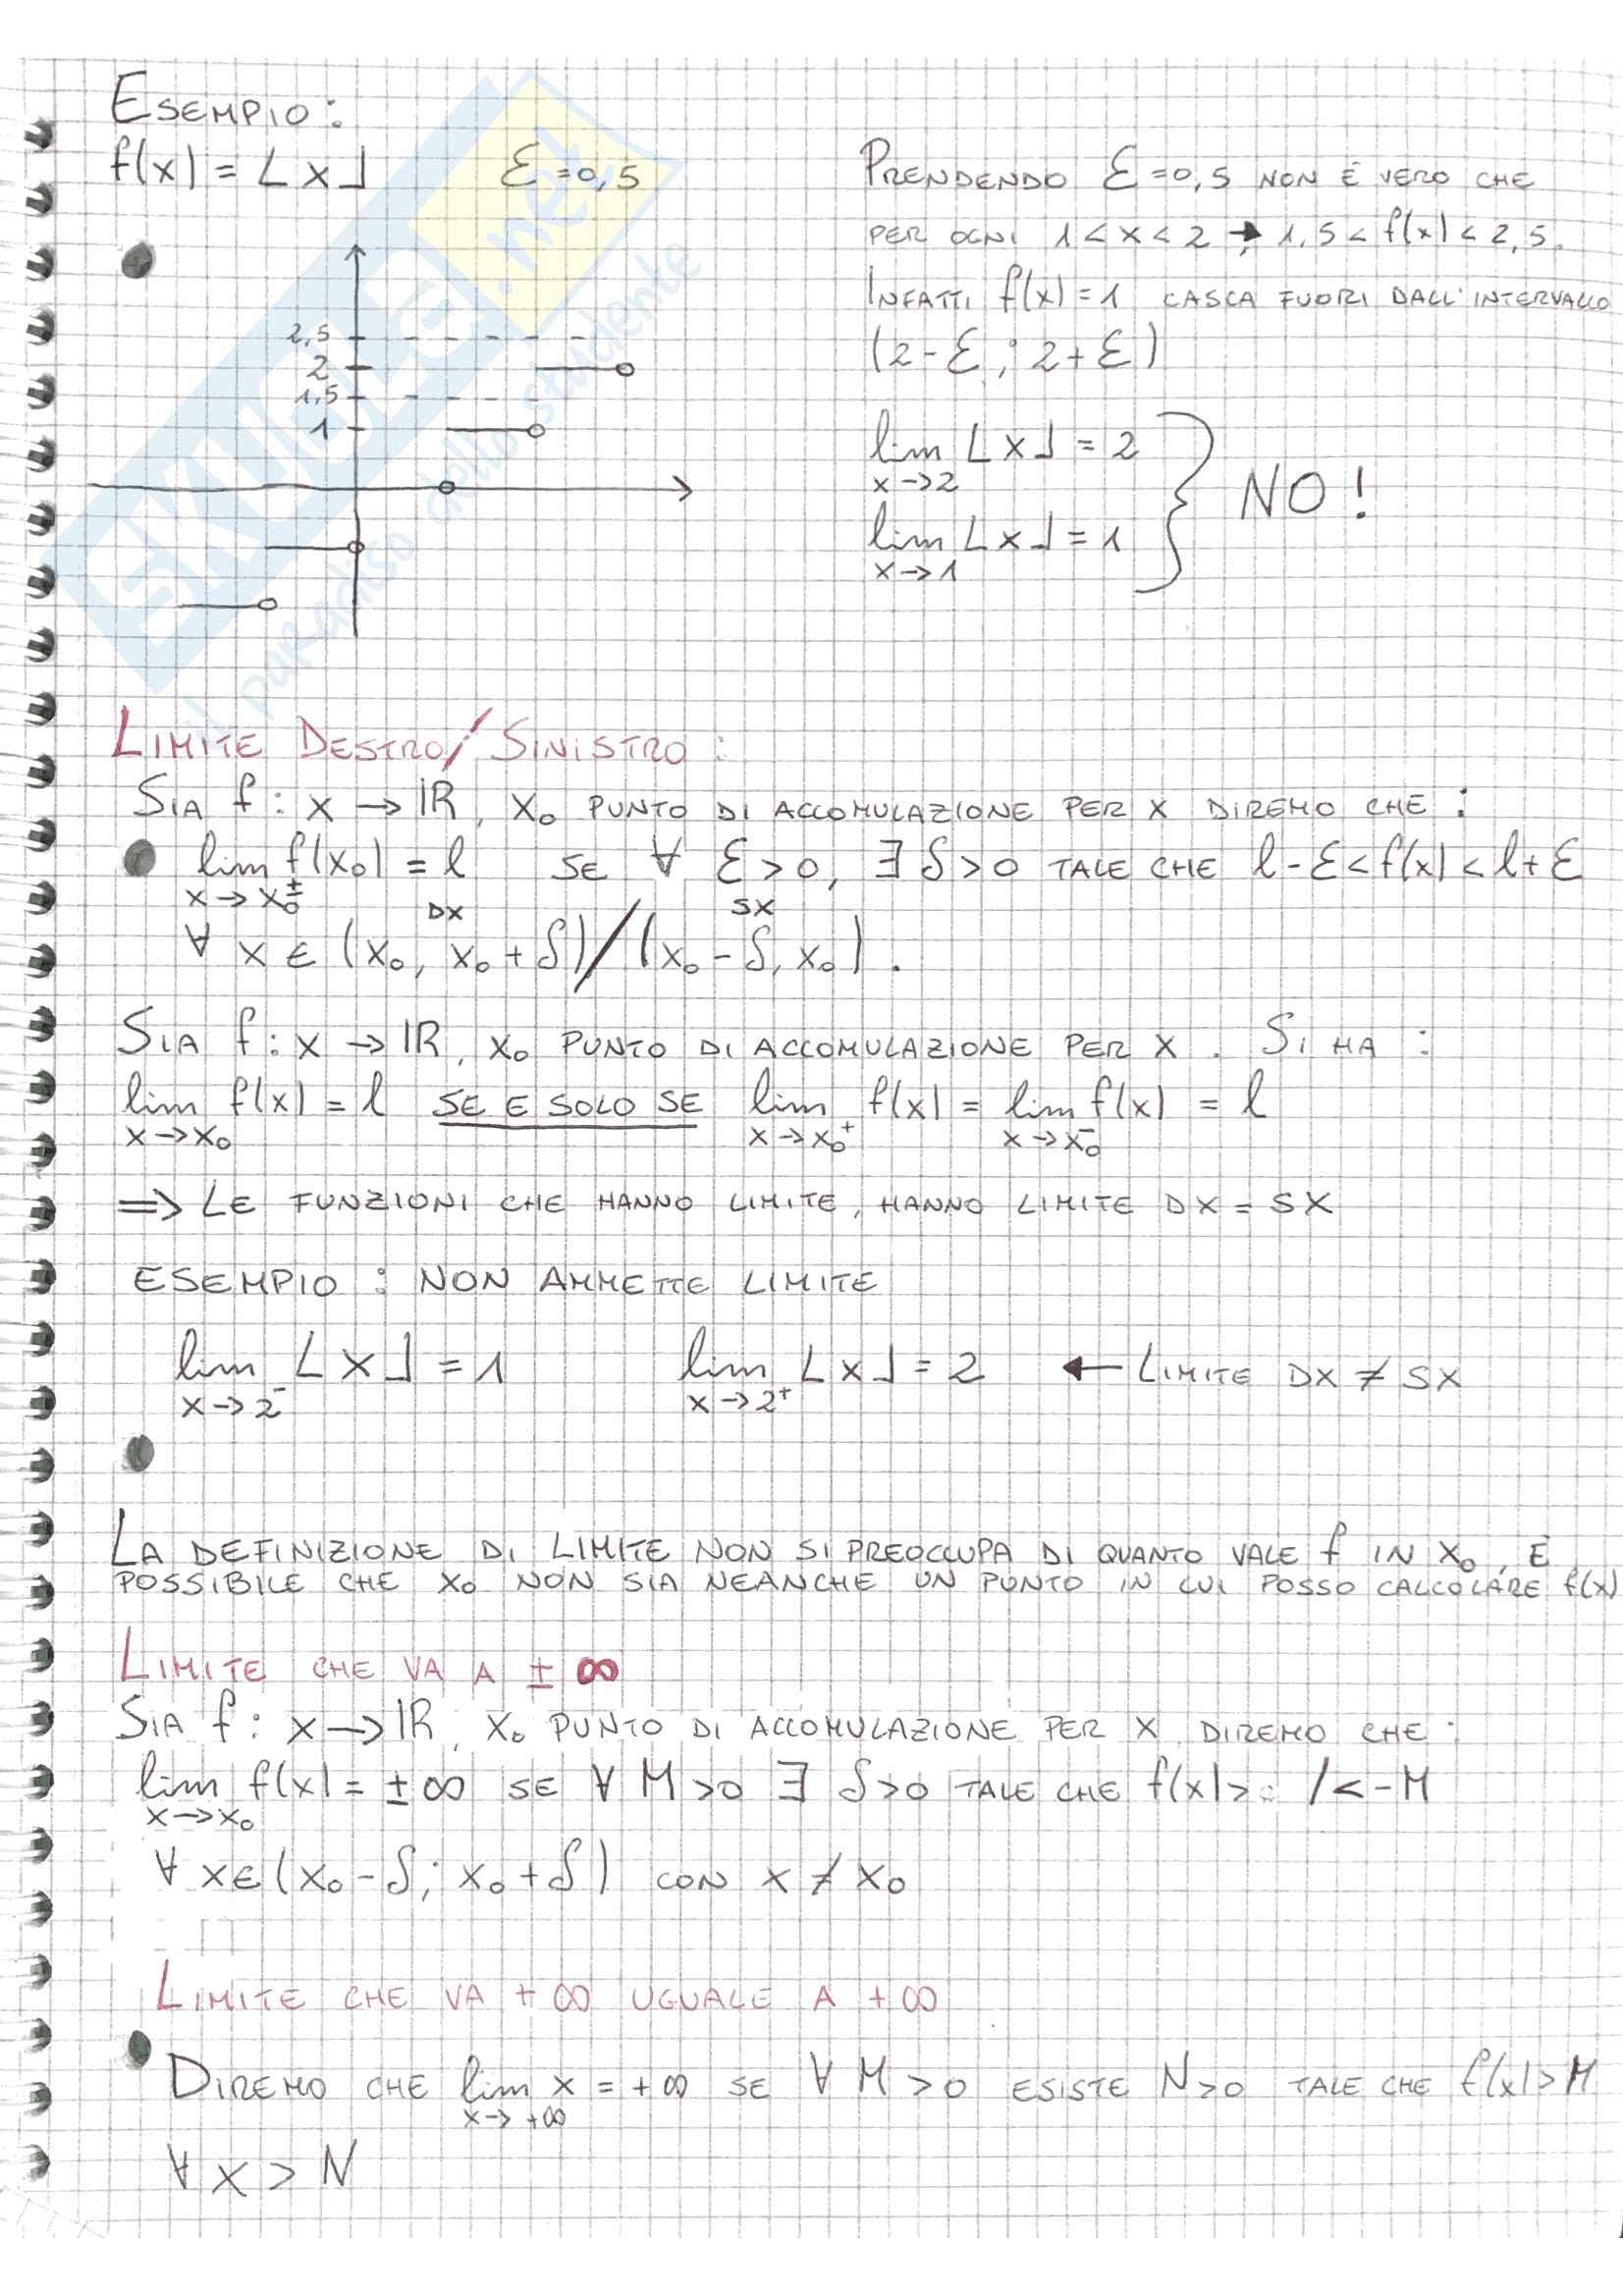 ESEMPIO:
f(x) = ⌊x⌋   ε = 0,5
2,5
2
1,5
1
PRENDENDO ε = 0,5 NON È VERO CHE
PER OGNI 1 < x < 2 → 1,5 < f(x) < 2,5.
INFATTI f(x) = 1 CASCA FUORI DALL'INTERVALLO
(2-ε ; 2+ε)
lim ⌊x⌋ = 2
x→2
lim ⌊x⌋ = 1
x→1
NO!
SKUOLA.net
il paradiso dello studente
LIMITE DESTRO/SINISTRO:
SIA f: x → ℝ, x₀ PUNTO DI ACCOMULAZIONE PER x DIREMO CHE:
lim f(x₀) = l SE ∀ ε > 0, ∃ δ > 0 TALE CHE l-ε < f(x) < l+ε
x→x₀±
DX SX
∀ x ∈ (x₀, x₀+δ)/(x₀-δ, x₀).
SIA f: x → ℝ, x₀ PUNTO DI ACCOMULAZIONE PER x. SI HA:
lim f(x) = l SE E SOLO SE lim f(x) = lim f(x) = l
x→x₀ x→x₀⁺ x→x₀⁻
⇒ LE FUNZIONI CHE HANNO LIMITE, HANNO LIMITE DX = SX
ESEMPIO: NON AMMETTE LIMITE
lim ⌊x⌋ = 1   lim ⌊x⌋ = 2 ← LIMITE DX ≠ SX
x→2⁻ x→2⁺
LA DEFINIZIONE DI LIMITE NON SI PREOCCUPA DI QUANTO VALE f IN x₀, È
POSSIBILE CHE x₀ NON SIA NEANCHE UN PUNTO IN CUI POSSO CALCOLARE f(x)
LIMITE CHE VA A ± ∞
SIA f: x → ℝ, x₀ PUNTO DI ACCOMULAZIONE PER x DIREMO CHE:
lim f(x) = ±∞ SE ∀ M > 0 ∃ δ > 0 TALE CHE f(x) > /< -M
x→x₀
∀ x ∈ (x₀-δ; x₀+δ) CON x ≠ x₀
LIMITE CHE VA +∞ UGUALE A +∞
DIREMO CHE lim x = +∞ SE ∀ M > 0 ESISTE N > 0 TALE CHE f(x) > M
x→+∞
∀ x > N